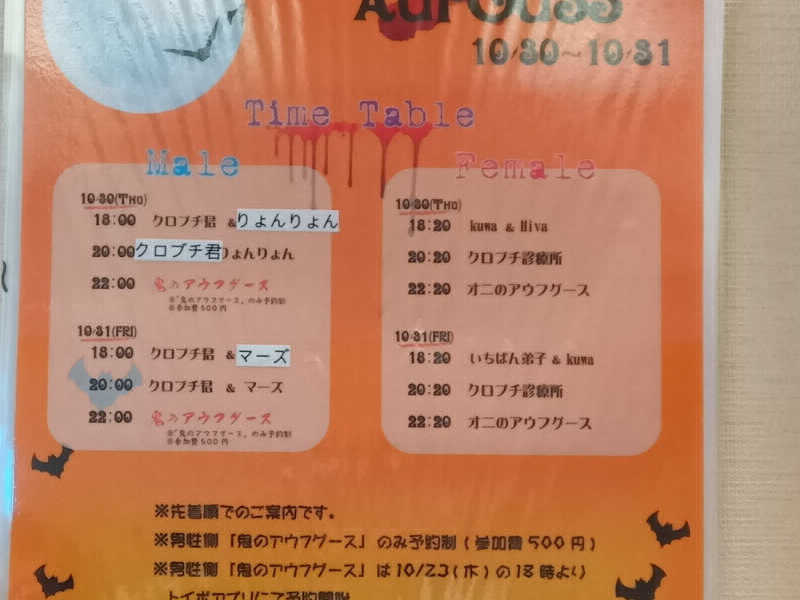 AUFGUSS
10/30～10/31
Time Table
Male
10/30(THU)
18:00 クロプチ君 &りょんりょん
20:00クロプチ君りょんりょん
22:00 鬼のアウフグース
※「鬼のアウフグース」のみ予約制
※参加費500円
10/31(FRI)
18:00 クロプチ君 &マーズ
20:00 クロプチ君 & マーズ
22:00 鬼のアウフグース
※「鬼のアウフグース」のみ予約制
※参加費500円
Female
10/30(THU)
18:20 kuwa & Hiva
20:20 クロプチ診療所
22:20 オニのアウフグース
10/31(FRI)
18:20 いちばん弟子 & kuwa
20:20 クロプチ診療所
22:20 オニのアウフグース
※先着順でのご案内です。
※男性側「鬼のアウフグース」のみ予約制(参加費500円)
※男性側「鬼のアウフグース」は10/23(木)の18時より
トイポアプリにて予約開始